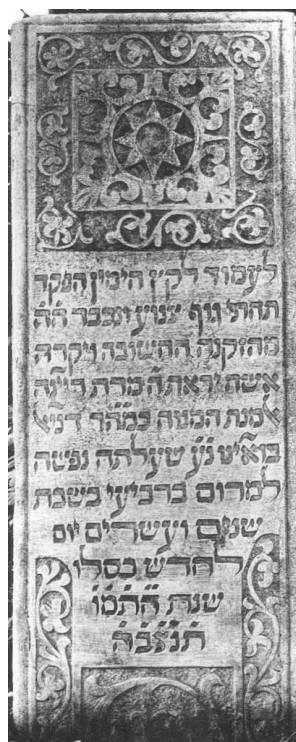 לעמוד לקץ הימין הפקד
תחתי גוף צנוע ונבר הה
מהזקנה החשובה ויקרה
אשה יראת ה מרת
אלמנת המנוח כמהר דניאל
בואינו נע שעלתה נפשה
למרום ברביעי בשבת
שנים ועשרים יום
לחדש כסלו
שנת התמו
תנצבה